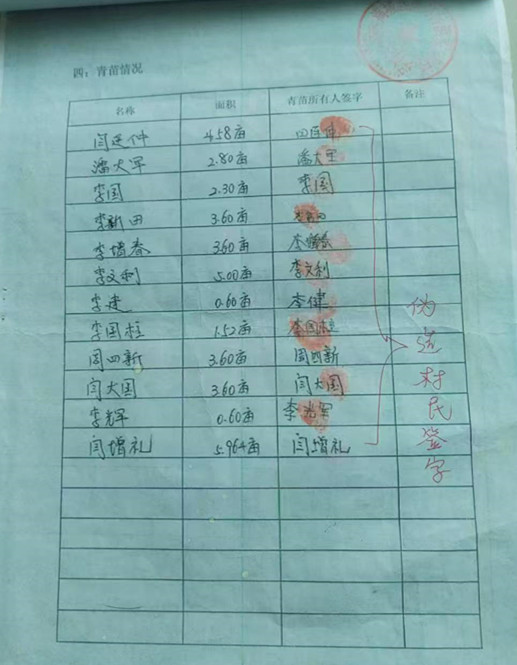 四：青苗情况
名称 面积 青苗所有人签字 备注
闫廷仲 4.58亩
潘大军 2.80亩 潘大军
李国 2.30亩 李国
李新田 3.60亩
李增春 3.60亩 李增春
李文利 5.00亩 李文利
李建 0.60亩 李健
李国柱 1.52亩 李国柱
周四新 3.60亩 周四新
闫大国 3.60亩 闫大国
李辉 0.60亩
闫增礼 5.964亩 闫增礼
伪造村民签字